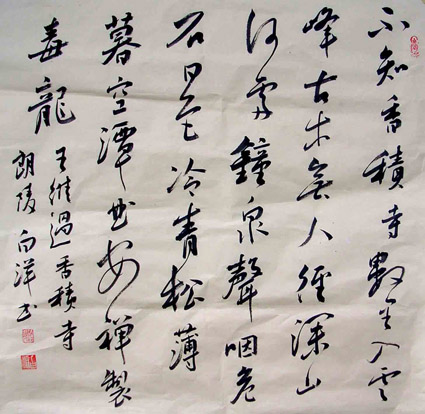 不知香積寺數里入雲
峰古木無人徑深山
何處鐘泉聲咽危
石日色冷青松薄
暮空潭曲安禪製
毒龍
王維過香積寺
朗陵向洋书